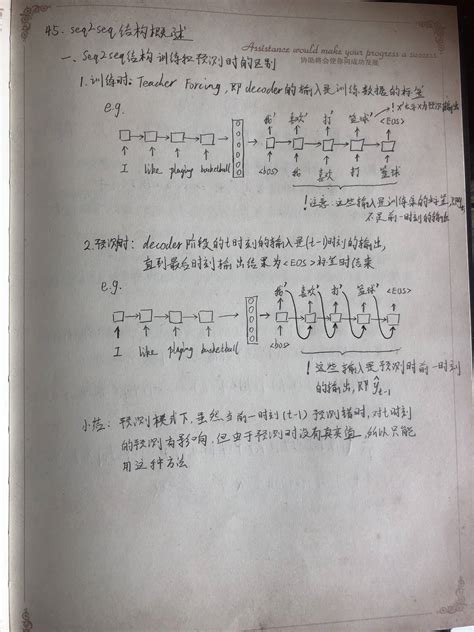 45. seq2seq结构概述
Assistance would make your progress a success.
协助将会使你向成功发展
一、seq2seq结构训练和预测时的区别
1.训练时: Teacher Forcing, 即decoder的输入是训练数据的标签
e.g.
! x'代表x为预测输出
我' 喜欢' 打' 篮球' <EOS>'
I like playing basketball <bos> 我 喜欢 打 篮球
! 注意:这些输入是训练集的标签,
不是前一时刻的输出
2.预测时: decoder阶段的t时刻的输入是(t-1)时刻的输出,
直到最后时刻输出结果为<EOS>标签时结束
e.g.
我' 喜欢' 打' 篮球' <EOS>
I like playing basketball <bos>
! 这些输入是预测时前一时刻
的输出, 即 ŷt-1
小结: 预测模式下,虽然当前一时刻(t-1)预测错时,对t时刻
的预测有影响,但由于预测时没有真实值,所以只能
用这种方法